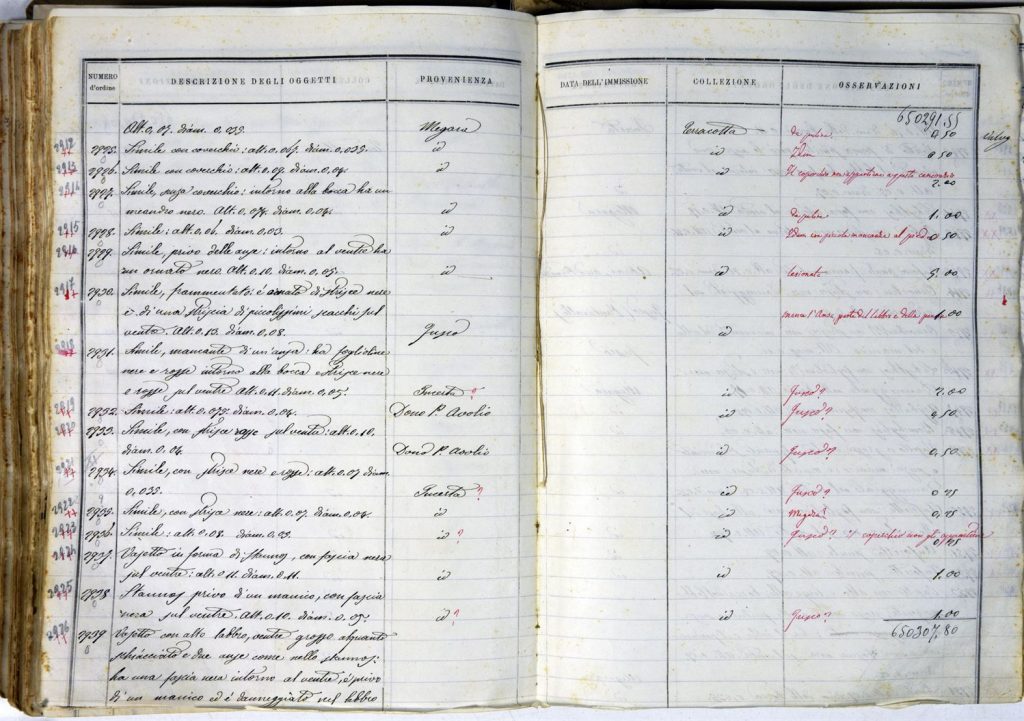 NUMERO d'ordine DESCRIZIONE DEGLI OGGETTI PROVENIENZA DATA DELL'IMMISSIONE COLLEZIONE OSSERVAZIONI
650291.55
Alt. 0,07. diam. 0,035. Megara Terracotta 0 50
2925. Simile con coverchio: alt. 0,067. diam. 0,035. id id Idem 0 50
2926. Simile con coverchio: alt. 0,07. diam. 0,04. id id Il coperchio non appartiene a questo
2927. Simile, senza coverchio: intorno alla bocca ha un 2.00
meandro nero. Alt. 0,078. diam. 0,04. id id 1.00
2928. Simile: alt. 0,06. diam. 0,03. id id Idem con piccola mancanza al piede 0 50
2929. Simile, privo delle anse: intorno al ventre ha
un ornato nero. Alt. 0,10. diam. 0,05. id id lesionato 5.00
2930. Simile, frammentato: è ornato di strisce nere
e di una striscia di piccolissimi scacchi sul 1.00
ventre. Alt. 0,13. diam. 0,08. Fusco id
2931. Simile, mancante di un'ansa: ha foglioline
nere e rosse intorno alla bocca e strisce nere
e rosse sul ventre Alt. 0,11. diam. 0,05. Incerta ? id Fusco? 2.00
2932. Simile: alt. 0,075. diam. 0,04. Dono P. Avolio id Fusco? 0,50
2933. Simile, con strisce rosse sul ventre: alt. 0,10.
diam. 0,06. Dono P. Avolio id Fusco? 0,50
2934. Simile, con strisce nere e rosse: alt. 0,07 diam.
0,035. Incerta ? id Fusco? 0,75
2935. Simile, con strisce nere: alt. 0,07. diam. 0,04. id id Megara? 0,75
2936. Simile: alt. 0,08. diam. 0,03. id ? id Fusco? il coperchio non gli appartiene 0,75
2937. Vasetto in forma di stamnos, con fascia nera
sul ventre: alt. 0,11. diam. 0,11. id id 1.00
2938. Stamnos privo d'un manico, con fascia
nera sul ventre. Alt. 0,10. diam. 0,05. id ? id Fusco? 1.00
650307.80
2939 Vasetto con alto labbro, ventre grosso alquanto
schiacciato e due anse come nello stamnos:
ha una fascia nera intorno al ventre, è privo
di un manico ed è danneggiato nel labbro
2912
2913
2914
2915
2916
2917
2918
2919
2920
2921
2922
2923
2924
2925
2926